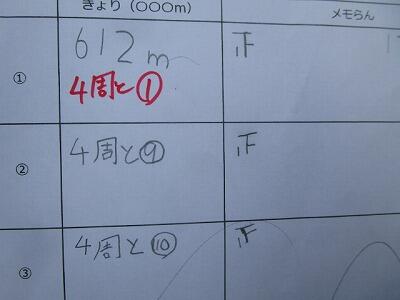 きょり（○○○m） メモらん
① 612m 正
4周と①
② 4周と⑨ 正
③ 4周と⑩ 正